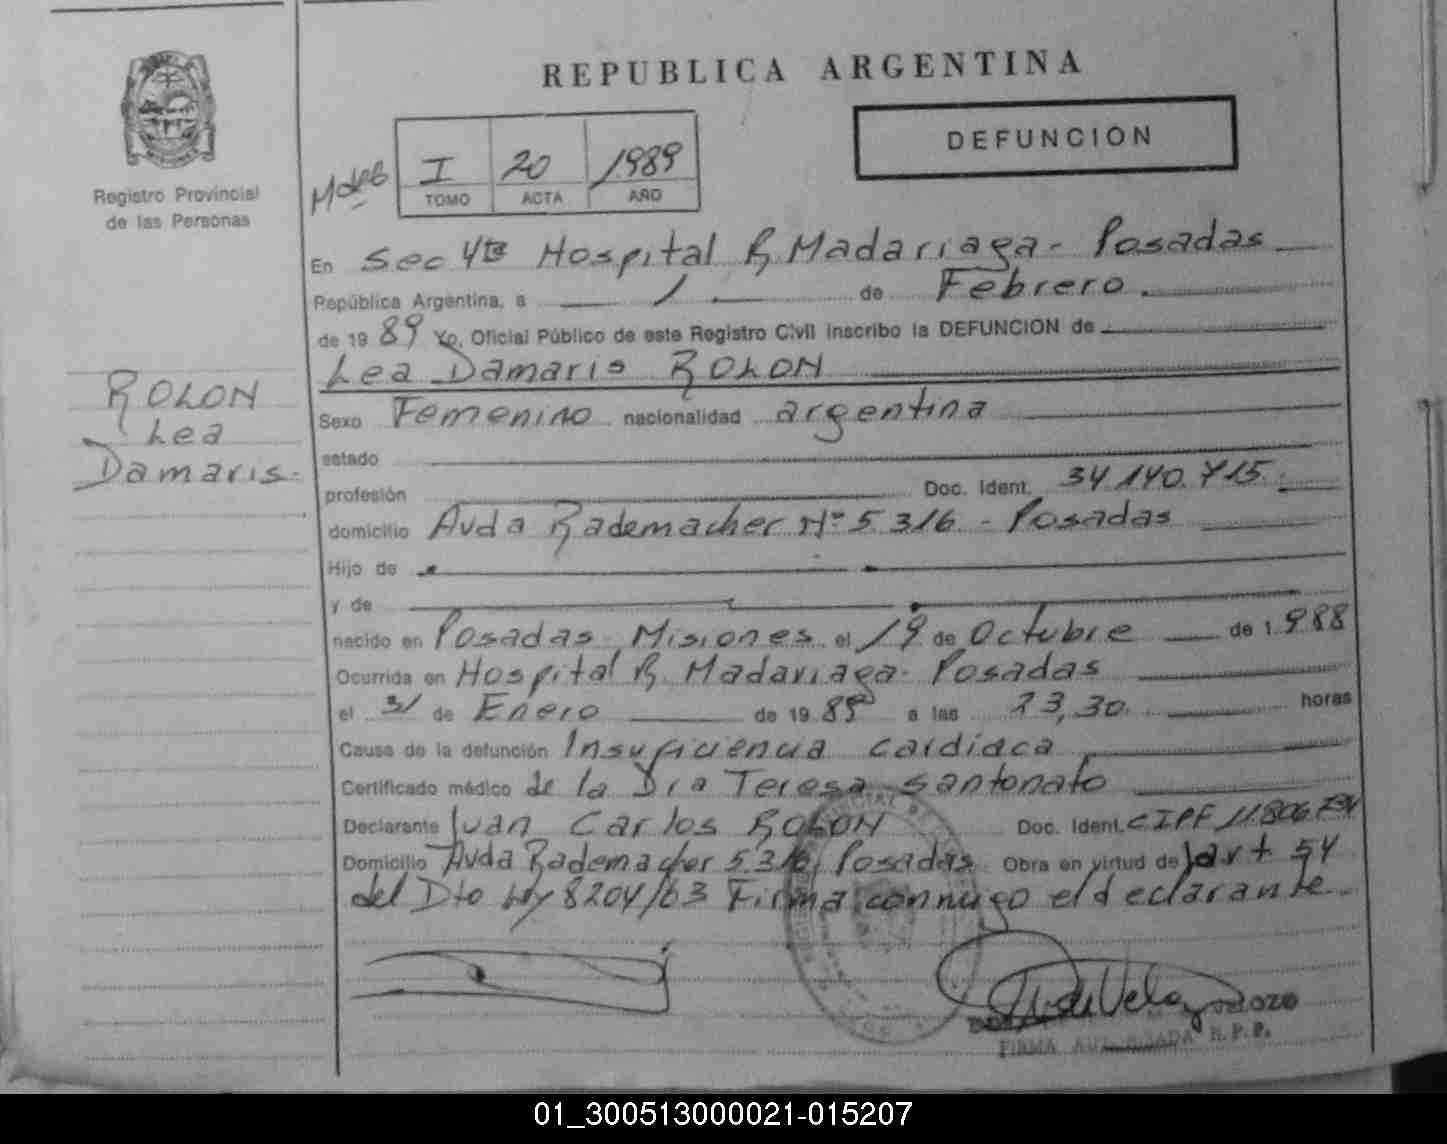 REPUBLICA ARGENTINA
DEFUNCION
I 20 1989
TOMO ACTA AÑO
Registro Provincial
de las Personas
En Sec 4ta Hospital R. Madariaga - Posadas
República Argentina, a 1 de Febrero
de 1989 Yo, Oficial Público de este Registro Civil inscribo la DEFUNCION de
Lea Damaris ROLON
ROLON
Lea
Damaris.
Sexo Femenino nacionalidad argentina
estado
profesión Doc. Ident. 34.140.715.
domicilio Avda Rademacher Nº 5.316 - Posadas
Hijo de
y de
nacido en Posadas Misiones el 19 de Octubre de 1.988
Ocurrida en Hospital R. Madariaga - Posadas
el 31 de Enero de 1989 a las 23,30. horas
Causa de la defunción Insuficiencia cardíaca
Certificado médico de la Dra Teresa Santonato
Declarante Juan Carlos ROLON Doc. Ident. CIPF 11.806.
Domicilio Avda Rademacher 5.316, Posadas Obra en virtud de art 54
del Dto Ley 8204/63 Firma conmigo el declarante
FIRMA R.P.P.
01_300513000021-015207